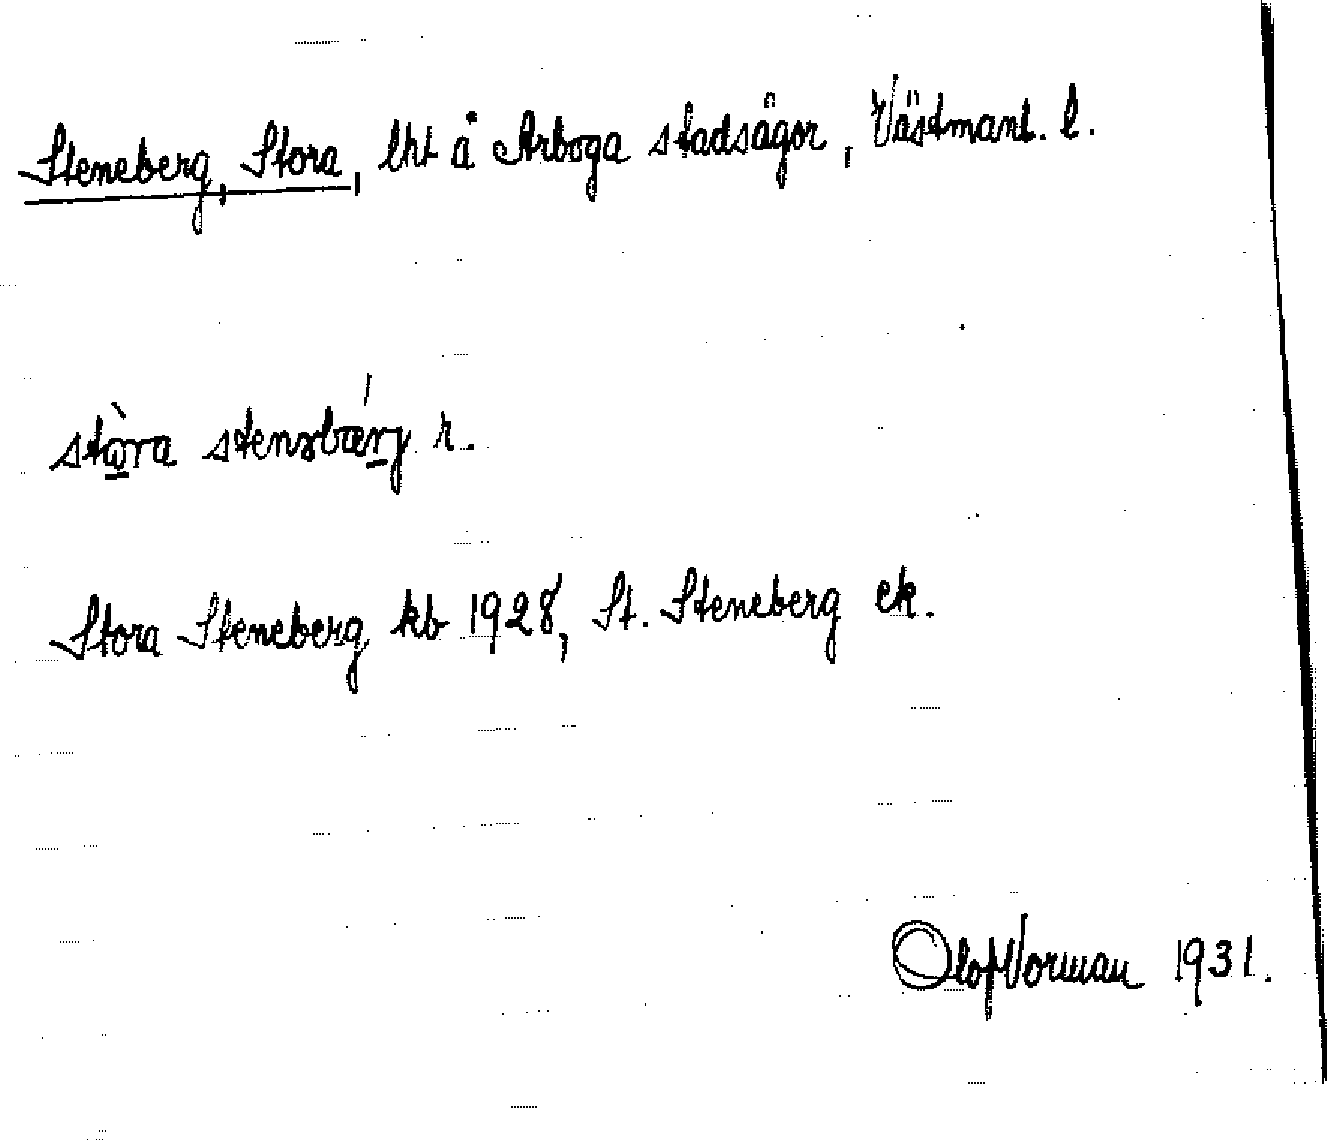 Steneberg, Stora, lht å Arboga stadsägor, Västmanl. l.
stòra stenəbærj r.
Stora Steneberg kb 1928, St. Steneberg ek.
Olof Norman 1931.